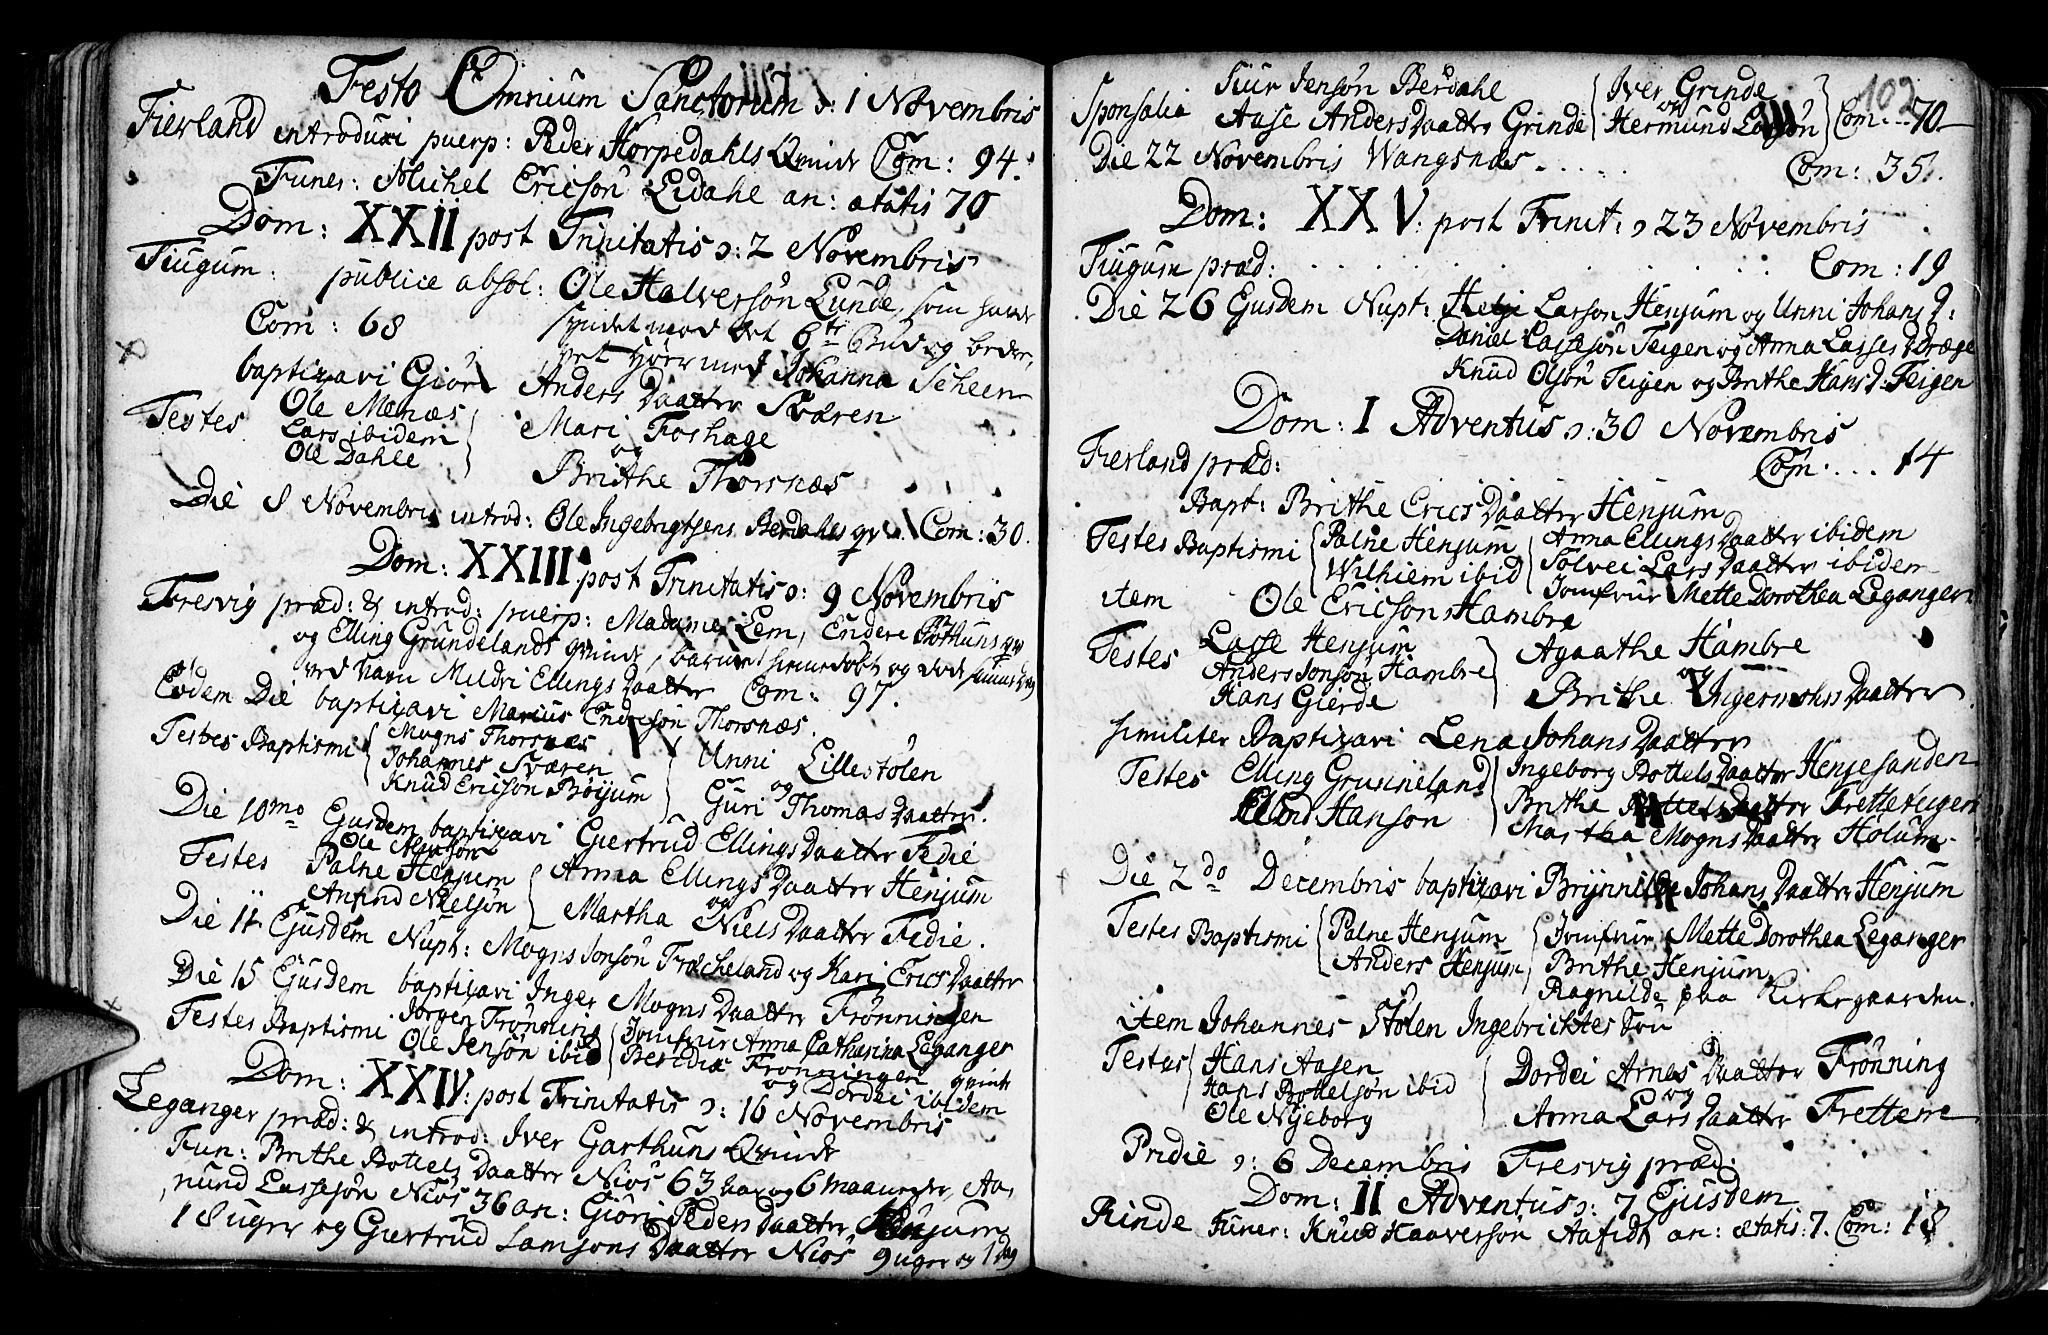 Festo Omnium Sanctorum ɔ: 1 Novembris
Fierland introduxi puerp: Peder Horpedahls Qvinde Com: 94.
Funer: Michel Ericsön Eidahl an: ætatis 70
Dom: XXII post Trinitatis ɔ: 2 Novembris
Tiugum: publice absol: Ole Halversön Lunde, som hafde
Com: 68 syndet mod det 6te Bud og bedrevet hoer med Johanna Scheen
baptizavi Giöri Anders Daatter Sværen
Testes Ole Menæs
Lars ibidem
Ole Dahle
Mari Foshage
og
Brithe Thorsnæs
Die 8 Novembris introd: Ole Ingebrigtsens Berdahls qv. Com: 30.
Dom: XXIII post Trinitatis ɔ: 9 Novembris
Fresvig præd: & introd: puerp: Madame Lem, Endere Böthuns qv
og Elling Grundelands qvinde, barnet hiemedöbt og död
ved navn Mildri Ellings Daatter Com: 97.
Eodem Die baptizavi Marius Endresön Thorsnæs.
Testes Baptismi Mogns Thorsnæs
Johannes Sværen
Knud Ericsön Böijum
Unni Lillestölen
og
Guri Thomas Daatter.
Die 10mo Ejusdem baptizavi Giertrud Ellings Daatter Fedie
Testes Ole
Palne Henjum
Anfind Nielsön
Anna Ellings Daatter Henjum
og
Martha Niels Daatter Fedie.
Die 11 Ejusdem Nupt: Mogns Jonsön Frecheland og Kari Erics Daatter
Die 15 Ejusdem baptizavi Inger Mogns Daatter Frönningen
Testes Baptismi Jörgen Frönning
Ole Jensön ibid
Jomfrue Anna Catharina Leganger
Beredia Frönningen qvinde
og Dordei ibidem
Dom: XXIV: post Trinitatis ɔ: 16 Novembris
Leganger præd: & introd: Iver Garthuns Qvinde
Fun: Brithe Bottels Daatter Niös 63 aar og 6 maaneder, Aa-
mund Lassesön Niös 36 an: Giöri Peders Daatter Henjum
18 uger og Giertrud Samsons Daatter Niös 9 uger og 1 dag
102
Sponsalia Siur Jensön Berdahl
Aase Anders Daatter Grinde
Iver Grinde
og
Hermund Larsön
Com: 70
Die 22 Novembris Wangsnæs . . . . . Com: 35.
Dom: XXV: post Trinit: ɔ 23 Novembris
Tiugum præd: . . . . . . . . . . Com: 19
Die 26 Ejusdem Nupt: Helje Larson Henjum og Unni Johans d:
Daniel Lassesön Teigen og Anna Lasses d Dræge
Knud Olsön Teigen og Brithe Hans d: Teigen
Dom: I Adventus ɔ: 30 Novembris
Fierland præd: Com: . . . 14
Bapt: Brithe Erics Daatter Henjum
Testes Baptismi Palne Henjum
Wilhiem ibid
Anna Ellings Daatter ibidem
Sölvei Lars Daatter ibidem
Jomfrue Mette Dorothea Leganger
item Ole Ericson Hambre
Testes Lasse Henjum
Anders Jonson Hambre
Hans Gierde
Agaathe Hambre
og
Brithe Ingermohns Daatter
similiter Baptizavi Lena Johans Daatter
Testes Elling Gruuneland
Elend Hansön
Ingeborg Bottels Daatter Henjesanden
Brithe Bottels Daatter Fretteteigen
Martha Mogns Daatter Holum
Die 2do Decembris baptizavi Brynnilde Johans Daatter Henjum
Testes Baptismi Palne Henjum
Anders Henjum
Jomfrue Mette Dorothea Leganger
Brithe Henjum
Ragnilde paa Kirkegaarden.
item Johannes Stölen Ingebricktes Sön
Testes Hans Aasen
Hans Bottelsön ibid
Ole Nyeborg
Dordei Arnes Daatter Frönning
og
Anna Lars Daatter Frettem
Pridie ɔ: 6 Decembris Fresvig præd:
Dom: II Adventus ɔ: 7 Ejusdem
Rinde Funer: Knud Haaversön Aafedt an: ætatis: 7. Com: 18